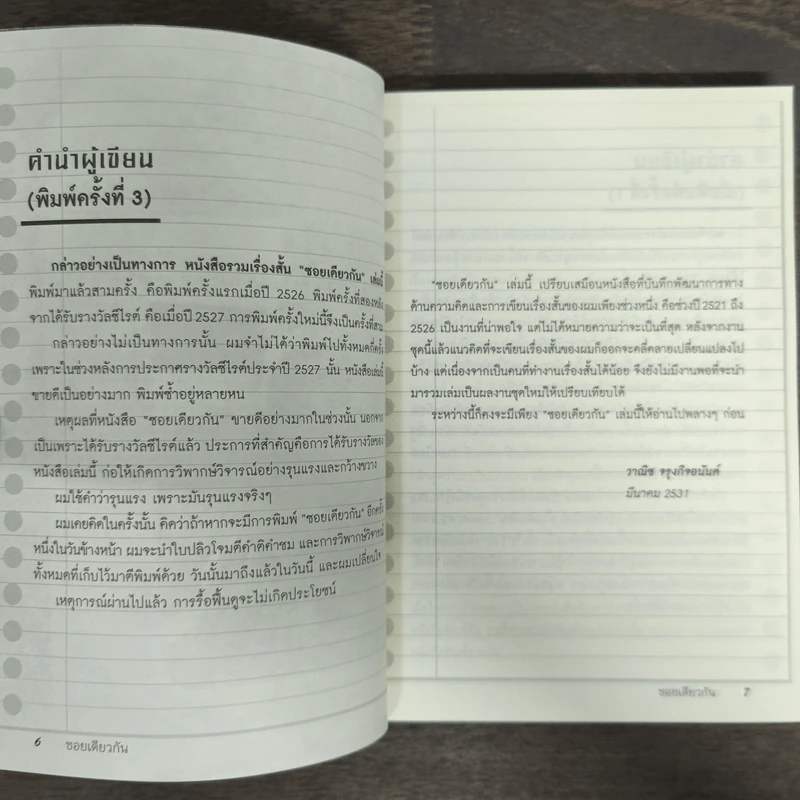 คำนำผู้เขียน
(พิมพ์ครั้งที่ 3)
กล่าวอย่างเป็นทางการ หนังสือรวมเรื่องสั้น "ซอยเดียวกัน" เล่มนี้
พิมพ์มาแล้วสามครั้ง คือพิมพ์ครั้งแรกเมื่อปี 2526 พิมพ์ครั้งที่สองหลัง
จากได้รับรางวัลซีไรต์ คือเมื่อปี 2527 การพิมพ์ครั้งใหม่นี้จึงเป็นครั้งที่สาม
กล่าวอย่างไม่เป็นทางการนั้น ผมจำไม่ได้ว่าพิมพ์ไปทั้งหมดกี่ครั้ง
เพราะในช่วงหลังการประกาศรางวัลซีไรต์ประจำปี 2527 นั้น หนังสือเล่มนี้
ขายดีเป็นอย่างมาก พิมพ์ซ้ำอยู่หลายหน
เหตุผลที่หนังสือ "ซอยเดียวกัน" ขายดีอย่างมากในช่วงนั้น นอกจาก
เป็นเพราะได้รับรางวัลซีไรต์แล้ว ประการที่สำคัญคือการได้รับรางวัลของ
หนังสือเล่มนี้ ก่อให้เกิดการวิพากษ์วิจารณ์อย่างรุนแรงและกว้างขวาง
ผมใช้คำว่ารุนแรง เพราะมันรุนแรงจริงๆ
ผมเคยคิดในครั้งนั้น คิดว่าถ้าหากจะมีการพิมพ์ "ซอยเดียวกัน" อีกครั้ง
หนึ่งในวันข้างหน้า ผมจะนำใบปลิวโจมตีคำติคำชม และการวิพากษ์วิจารณ์
ทั้งหมดที่เก็บไว้มาตีพิมพ์ด้วย วันนั้นมาถึงแล้วในวันนี้ และผมเปลี่ยนใจ
เหตุการณ์ผ่านไปแล้ว การรื้อฟื้นดูจะไม่เกิดประโยชน์
6 ซอยเดียวกัน
"ซอยเดียวกัน" เล่มนี้ เปรียบเสมือนหนังสือที่บันทึกพัฒนาการทาง
ด้านความคิดและการเขียนเรื่องสั้นของผมเพียงช่วงหนึ่ง คือช่วงปี 2521 ถึง
2526 เป็นงานที่น่าพอใจ แต่ไม่ได้หมายความว่าจะเป็นที่สุด หลังจากงาน
ชุดนี้แล้วแนวคิดที่จะเขียนเรื่องสั้นของผมก็ออกจะคลี่คลายเปลี่ยนแปลงไป
บ้าง แต่เนื่องจากเป็นคนที่ทำงานเรื่องสั้นได้น้อย จึงยังไม่มีงานพอที่จะนำ
มารวมเล่มเป็นผลงานชุดใหม่ให้เปรียบเทียบได้
ระหว่างนี้ก็คงจะมีเพียง "ซอยเดียวกัน" เล่มนี้ให้อ่านไปพลางๆ ก่อน
วาณิช จรุงกิจอนันต์
มีนาคม 2531
ซอยเดียวกัน 7